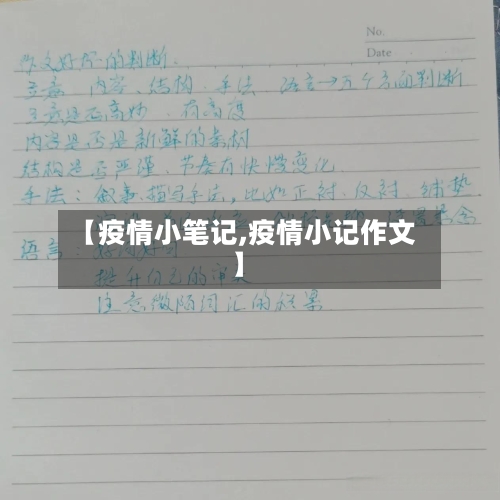 No.
Date
作文好坏的判断.
立意、内容、结构、手法、语言→五个方面判断
立意是否高妙、有高度
内容是否是新鲜的素材
结构是否严谨、节奏有快慢变化
手法:叙事、描写手法,比如正衬、反衬、铺垫
【疫情小笔记,疫情小记作文
】
语言:
提升自己的
注意做陌词汇的积累